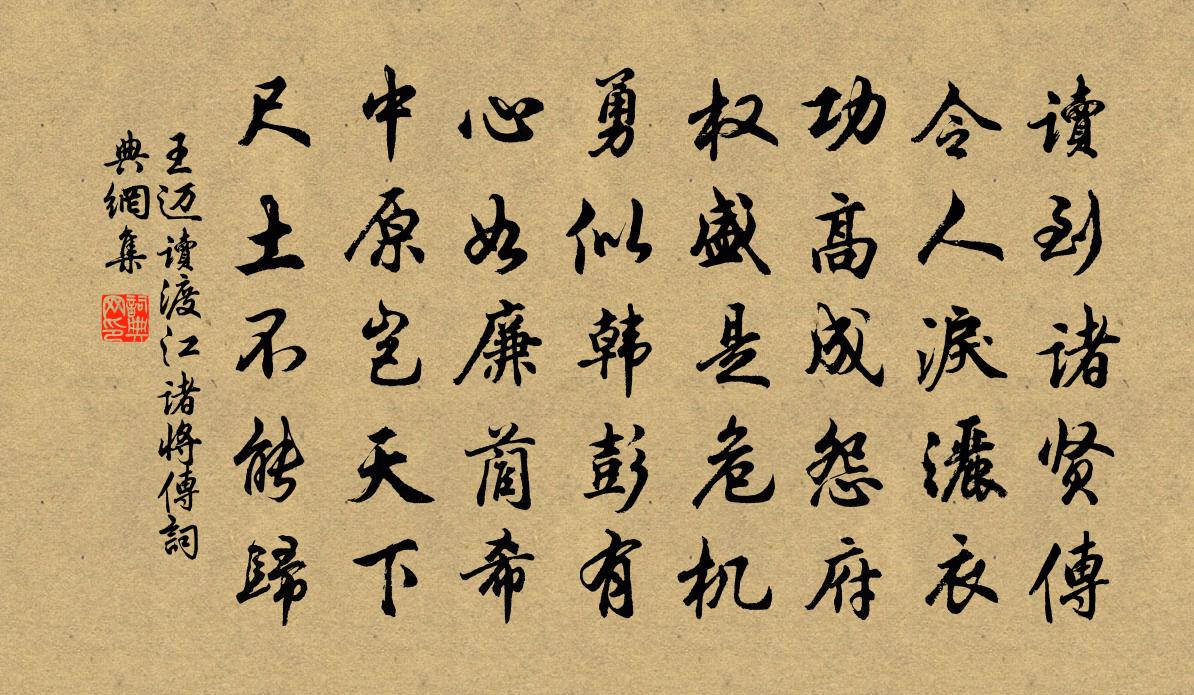 讀到诸贤傳
令人淚灑衣
功高成怨府
权盛是危机
勇似韩彭有
心如廉藺希
中原岂天下
尺土不能歸
王迈讀渡江诸将傳詞
典網集
詞典
网印